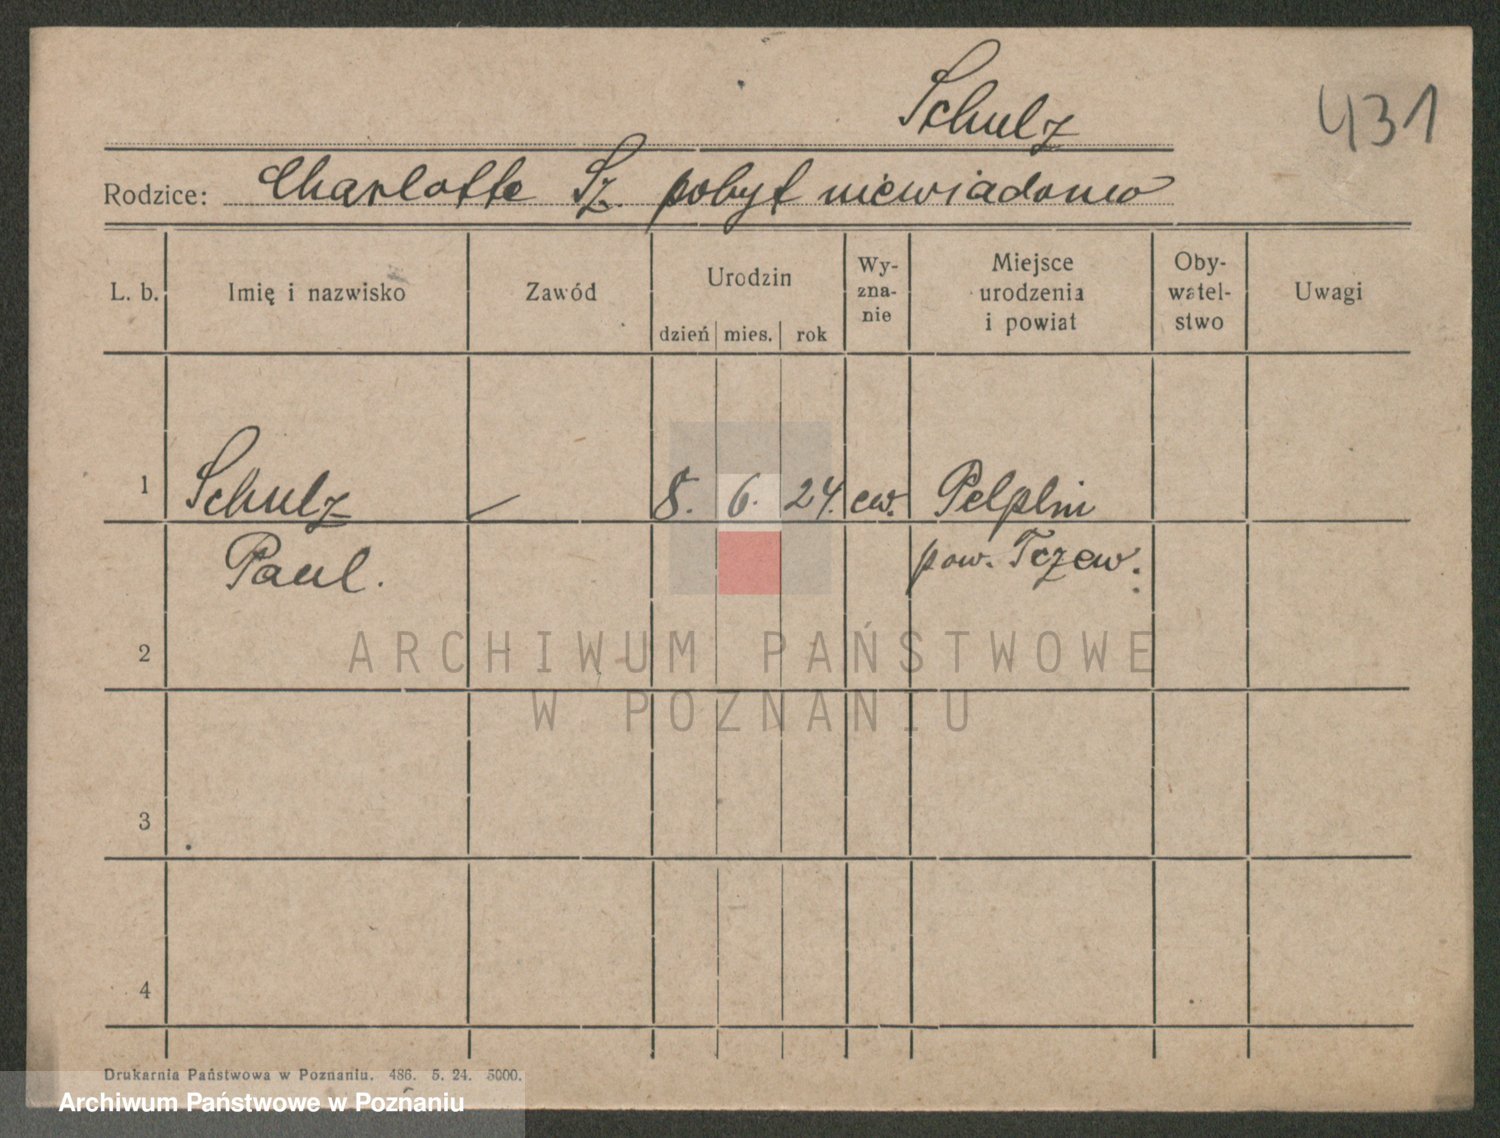 Schulz
431
Rodzice: Charlotte Sz. pobyt niewiadomo
L. b. Imię i nazwisko Zawód Urodzin dzień mies. rok Wy-zna-nie Miejsce urodzenia i powiat Oby-watel-stwo Uwagi
1 Schulz — 8. 6. 24. ew. Pelplin
Paul. pow. Tczew.
2
ARCHIWUM PAŃSTWOWE
W POZNANIU
3
4
Drukarnia Państwowa w Poznaniu. 486. 5. 24. 5000.
Archiwum Państwowe w Poznaniu